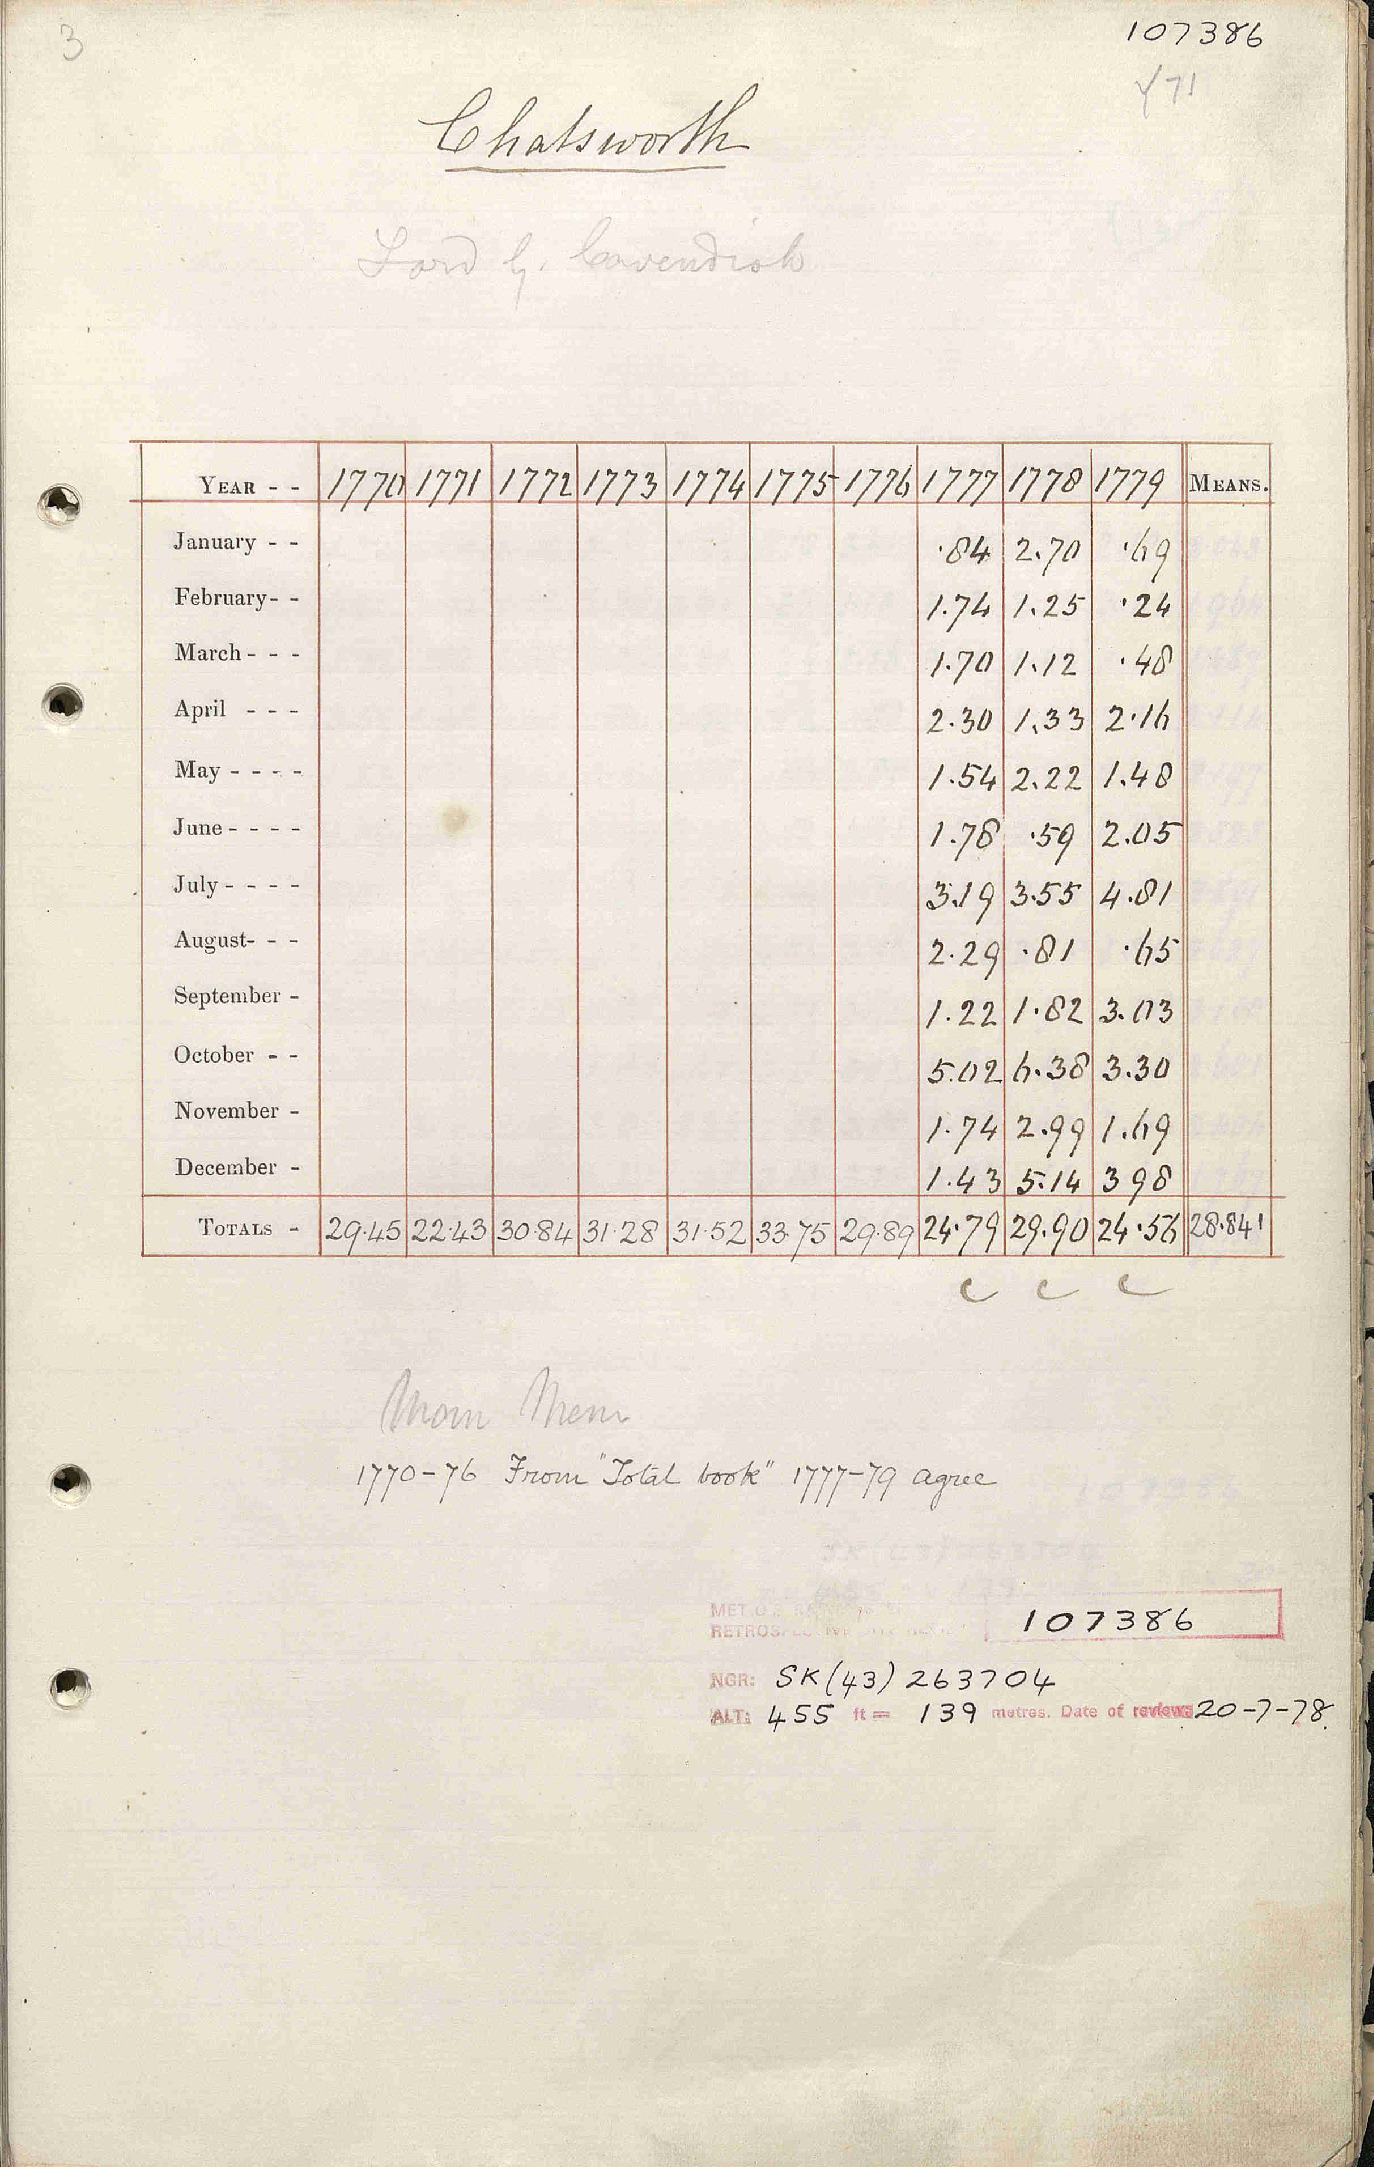 3
107386
71
Chatsworth
Lord G. Cavendish
YEAR - - 1770 1771 1772 1773 1774 1775 1776 1777 1778 1779 MEANS.
January - - ·84 2.70 ·69
February- - 1.74 1.25 ·24
March - - - 1.70 1.12 ·48
April - - - 2.30 1.33 2·16
May - - - - 1.54 2.22 1.48
June - - - - 1.78 ·59 2.05
July - - - - 3.19 3.55 4.81
August- - - 2.29 ·81 ·65
September - 1.22 1.82 3.03
October - - 5.02 6.38 3.30
November - 1.74 2.99 1.69
December - 1.43 5.14 3 98
TOTALS - 29·45 22·43 30·84 31·28 31·52 33·75 29·89 24·79 29.90 24·56 28·841
c c c
Morn Mem
1770-76 From "Total book" 1777-79 agree
MET.O.
107386
NGR: SK(43)263704
ALT: 455 ft = 139 metres. Date of review 20-7-78.